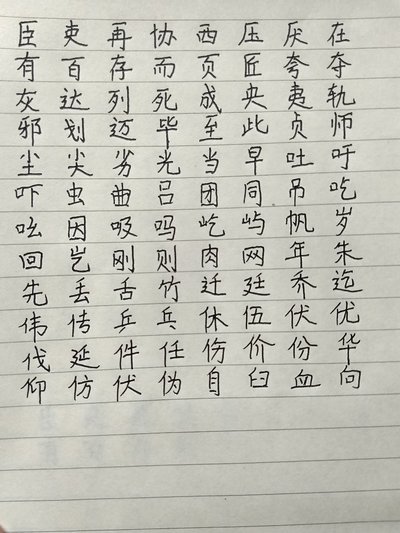 臣吏再协西压厌在
有百存而页匠夸夺
灰达列死成央夷轨
邪划迈毕至此贞师
尘尖劣光当早吐吁
吓虫曲吕团同吊吃
吆因吸吗屹屿帆岁
回岂刚则肉网年朱
先丢舌竹迁廷乔迄
伟传乒乓休伍伏优
伐延件任伤价份华
仰仿伙伪自臼血向